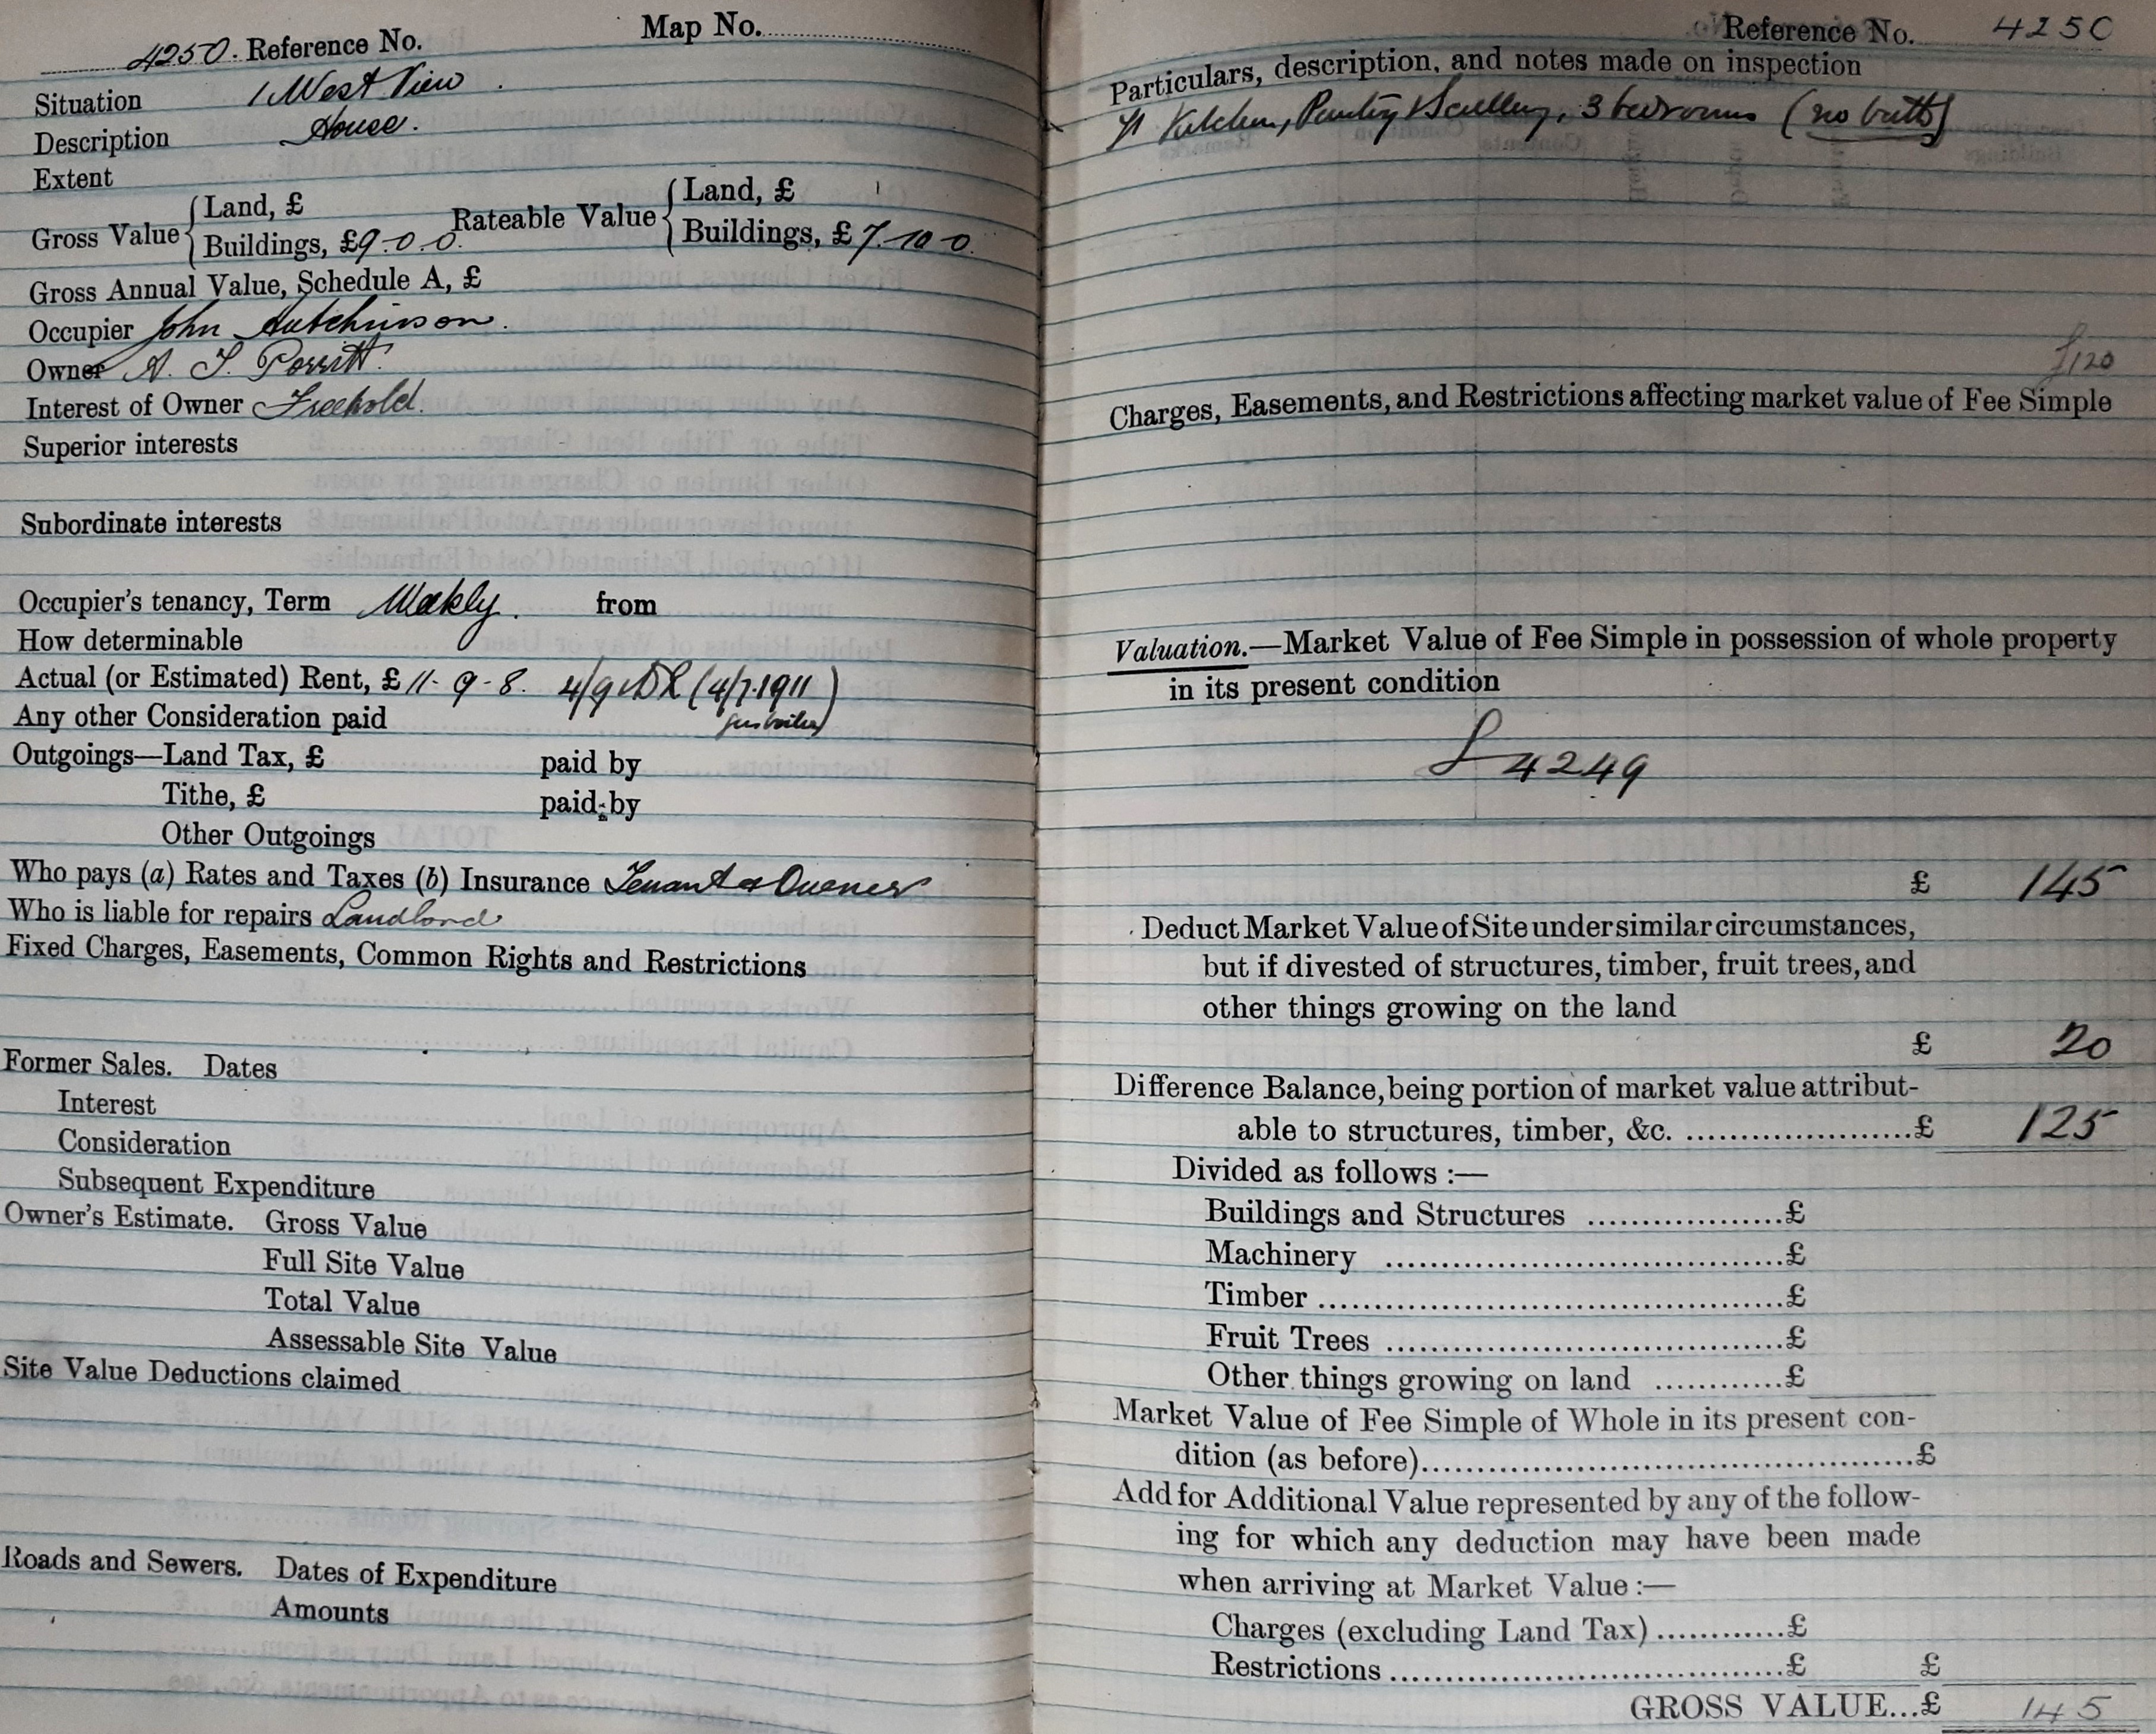 4250. Reference No. Map No.
Situation 1 West View.
Description House.
Extent
Gross Value { Land, £
Buildings, £9-0-0. Rateable Value { Land, £
Buildings, £7-10-0.
Gross Annual Value, Schedule A, £
Occupier John Hutchinson.
Owner A. T. Porritt.
Interest of Owner Freehold.
Superior interests
Subordinate interests
Occupier's tenancy, Term Weekly. from
How determinable
Actual (or Estimated) Rent, £11-9-8. 4/9 (4/7.1911)
Any other Consideration paid
Outgoings—Land Tax, £ paid by
Tithe, £ paid by
Other Outgoings
Who pays (a) Rates and Taxes (b) Insurance Tenant & Owner
Who is liable for repairs Landlord
Fixed Charges, Easements, Common Rights and Restrictions
Former Sales. Dates
Interest
Consideration
Subsequent Expenditure
Owner's Estimate. Gross Value
Full Site Value
Total Value
Assessable Site Value
Site Value Deductions claimed
Roads and Sewers. Dates of Expenditure
Amounts
Reference No. 4250
Particulars, description, and notes made on inspection
Kitchen, Pantry & Scullery, 3 bedrooms (no bath)
£120
Charges, Easements, and Restrictions affecting market value of Fee Simple
Valuation.—Market Value of Fee Simple in possession of whole property
in its present condition
£4249
£ 145
Deduct Market Value of Site under similar circumstances,
but if divested of structures, timber, fruit trees, and
other things growing on the land
£ 20
Difference Balance, being portion of market value attribut-
able to structures, timber, &c. ......................£ 125
Divided as follows :—
Buildings and Structures ...................£
Machinery .......................................£
Timber.............................................£
Fruit Trees .......................................£
Other things growing on land ............£
Market Value of Fee Simple of Whole in its present con-
dition (as before)................................................£
Add for Additional Value represented by any of the follow-
ing for which any deduction may have been made
when arriving at Market Value :—
Charges (excluding Land Tax)............£
Restrictions.......................................£ £
GROSS VALUE...£ 145